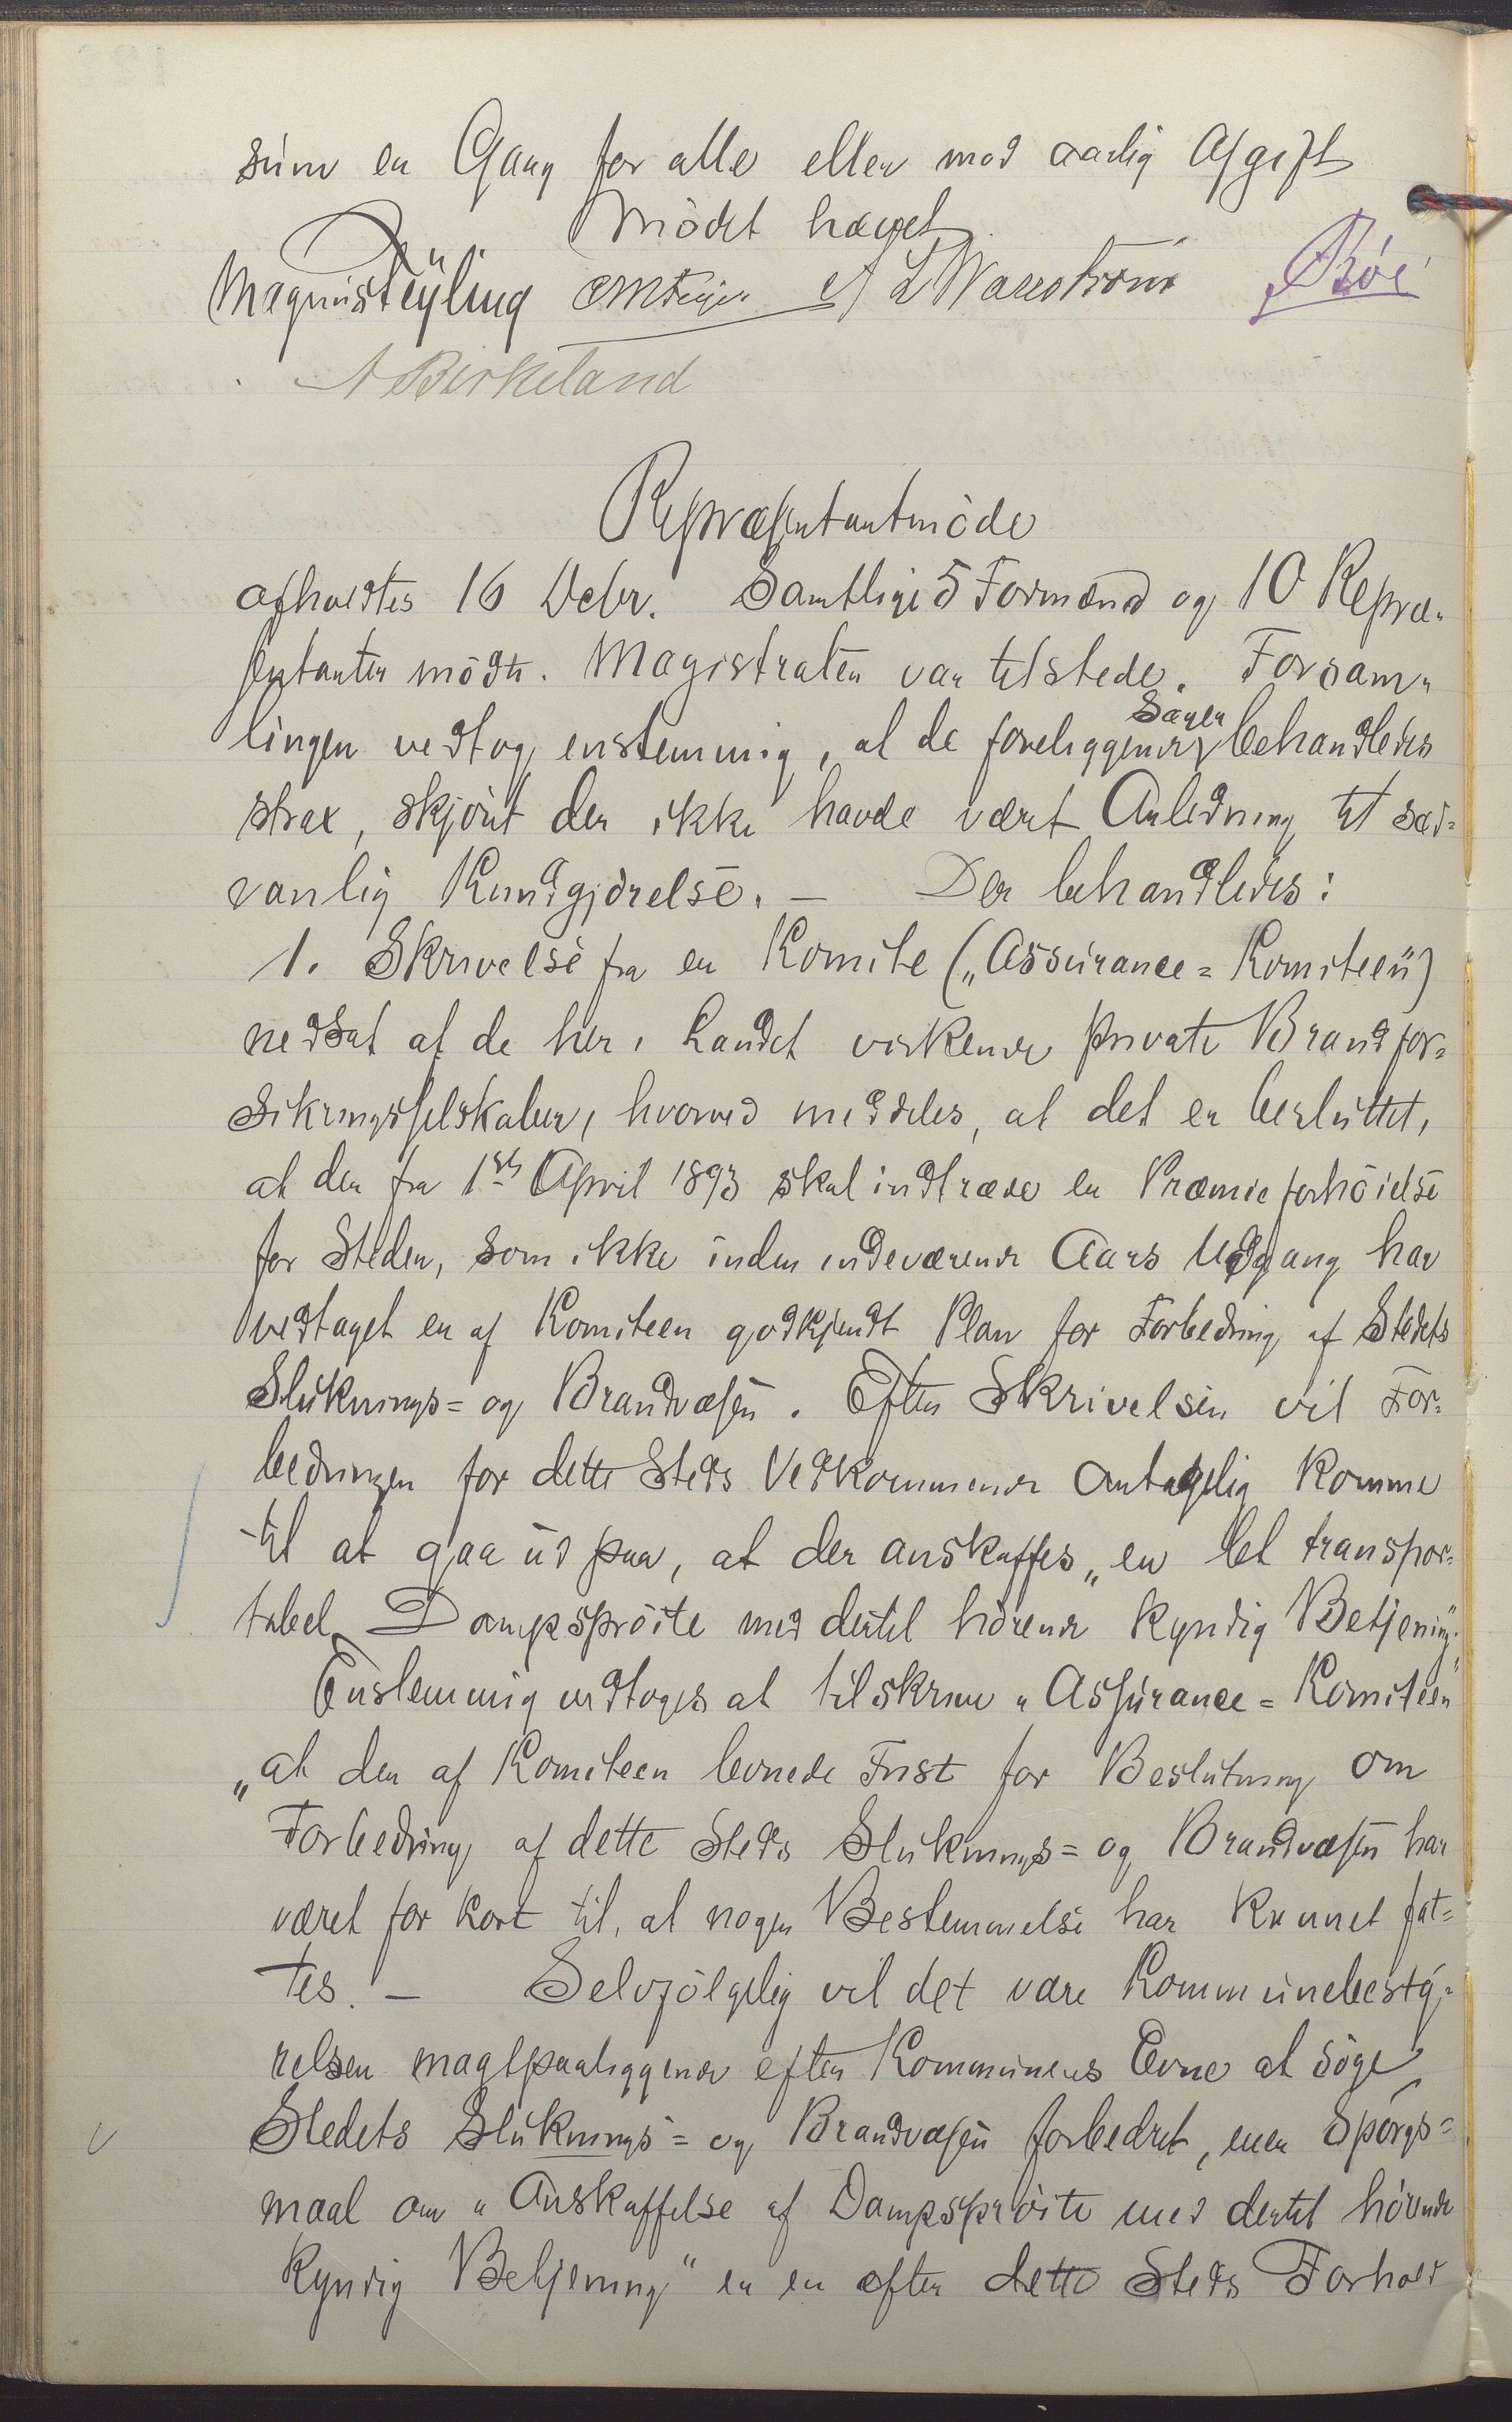 sum en Gang for alle eller mod aarlig Afgift
Mödet hævet
Magnus Teÿling A L Wareström Böe
A Birkeland
Repræsentantmöde
afholdtes 16 Debr. Samtlige 5 Formænd og 10 Repræ-
sentanter mödte. Magistraten var tilstede. Forsam-
lingen vedtog enstemmig, at de foreliggende Sager behandledes
strax, skjönt der ikke havde været Anledning til sæd-
vanlig Kundgjörelse. – Der behandledes:
1. Skrivelse fra en Komite („Assurance-Komiteen“)
nedsat af de her i Landet virkende private Brandfor-
sikringsselskaber, hvorved meddeles, at det er besluttet,
at der fra 1ste April 1893 skal indtræde en Præmieforhöielse
for Steder, som ikke inden indeværende Aars Udgang har
vedtaget en af Komiteen godkjendt Plan for Forbedring af Stedets
Sluknings- og Brandvæsen. Efter Skrivelsen vil For-
bedringen for dette Steds Vedkommende antagelig komme
til at gaa ud paa, at der anskaffes „en let transpor-
tabel Dampspröite med dertil hörende kyndig Betjening“.
Enstemmig vedtoges at tilskrive „Assurance-Komiteen“
„at den af Komiteen levnede Frist for Beslutning om
Forbedring af dette Steds Sluknings- og Brandvæsen har
været for kort til, at nogen Bestemmelse har kunnet fat-
tes. – Selvfölgelig vil det være Kommunebestÿ-
relsen magtpaaliggende efter Kommunens Evne at söge
Stedets Sluknings- og Brandvæsen forbedret, men Spörgs-
maal om „Anskaffelse af Dampspröite med dertil hörende
kyndig Betjening“ er en efter dette Steds Forhold